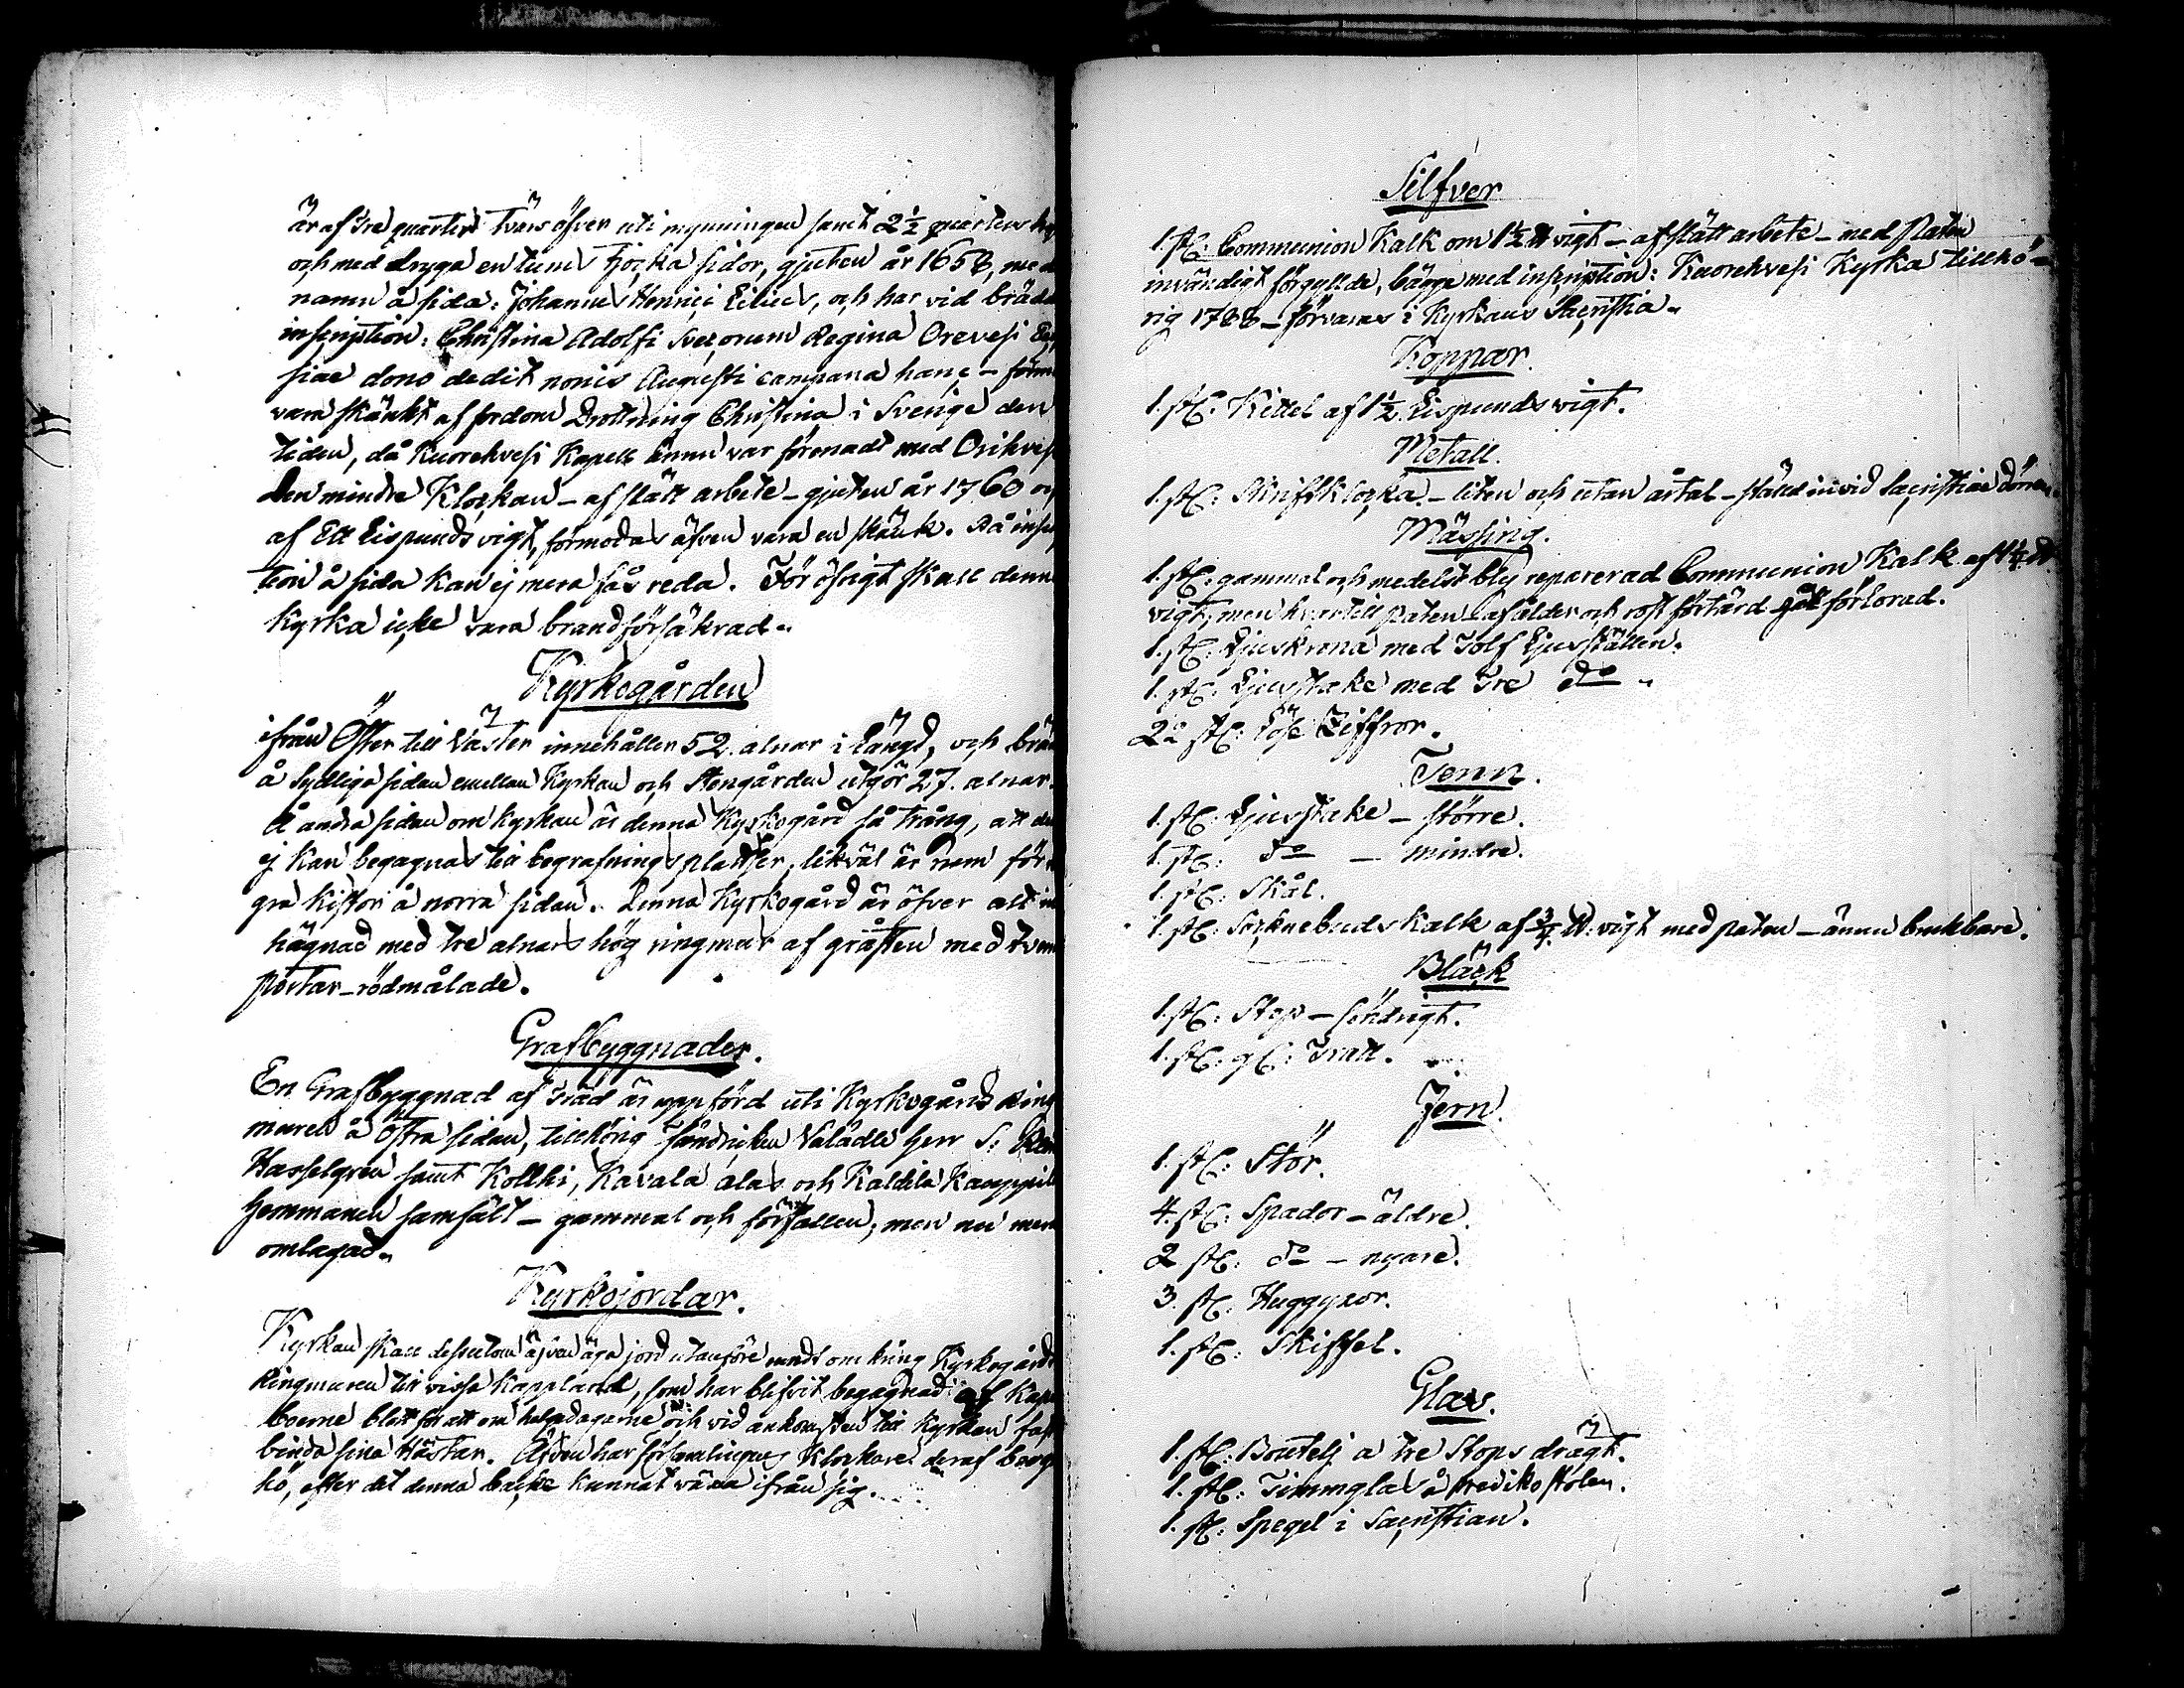 är af Tre quarter tvärs öfver uti mynningen samt 2 1/2 quarters
och med dryga en tums tjocka sidor, gjuten år 1658, med
namn å sida: Johannes Henrici Eilies, och har vid brädd
inscription: Christina Adolfi Svecorum Regina Orevesi
siae dono dedit nonis Augusti campana hanc –
vara skänkt af fordom Drottning Christina i Sverige den
tiden, då Kuorehvesi Kapell ännu var förenadt med Orihvesi
Den mindre Klockan – af slätt arbete – gjuten år 1760 och
af Ett Lispunds vigt, formodas äfven vara en skänk. På inscrip
tion å sida kan ej mera fås reda. För öfrigt skall denna
kyrka icke vara brandförsäkrad.
Kyrkogården
ifrån Öster till Väster innehåller 52. alnar i Längd, och
å Sydliga sidan emellan Kyrkan och Stengården utgör 27. alnar.
Å andra sidan om kyrkan är denna Kyrkogård så trång, att
ej kan begagnas till begrafnings platser, likväl är rum för
gra kistor å norra sidan. Denna Kyrkogård är öfver alt in
hägnad med tre alnars hög ringmur af gråsten med tvenne
portar – rödmålade.
Grafbyggnader.
En Grafbyggnad af Träd är uppförd uti Kyrkogårds Ring
muren å Östra sidan, tillhörig Fändricken Välädle Herr S:
Hasselgren samt Kollki, Kavala alas och Kaldila Kauppila
Hemmanen samfält – gammal och förfallen, men nu mera
omlagad.
Kyrkojordar.
Kyrkan skall dessutom äfven äga jord utanföre rundt omkring Kyrkogårds
Ringmuren till vissa kappland, som har blifvit begagnad af Kapell
boerne blott för att om helgedagarne och vid ankomsten till Kyrkan fast
binda sina Hästar. Äfven har församlingens Klockare deraf
hö, efter det denna backe kunnat växa ifrån sig.
Silfver
1. st: Communion Kalk om 1 1/2 ℔ vigt – af slätt arbete – med Paten
invändigt förgyllde, bägge med inscription: Kuorehvesi Kyrka tillhö-
rig 1788 – förvaras i Kyrkans Sacristia.
Koppar.
1. st: Kittel af 1 1/2. Lispunds vigt.
Metall.
1. st: Skriftklocka – liten och utan årtal – ställd invid Sacristiae dörren.
Mässing.
1. st: gammal och medelst bly reparerad Communion Kalk af 1 1/4 ℔.
vigt, men hvartill Paten – af ålder och rost förtärd gått förlorad.
1. st: Ljuskrona med Tolf Ljusställen.
1. st: Ljusstake med Tre do
22 st: Lösa Ziffror.
Tenn.
1. st: Ljusstake – större.
1. st: do – mindre.
1. st: Skål.
1. st: Socknebudskalk af 3/4. ℔: vigt med paten – ännu brukbare.
Bläck
1. st: Stop – söndrigt.
1. st: gl: Tratt.
Jern.
1. st: Stör.
4. st: Spador – äldre.
2 st: do – nyare.
3. st: Huggyxor.
1. st: Skiffel.
Glas.
1. st: Boutelj a tre Stops drägt.
1. st: Timmglas å Predikostolen.
1. st: Spegel i Sacristian.